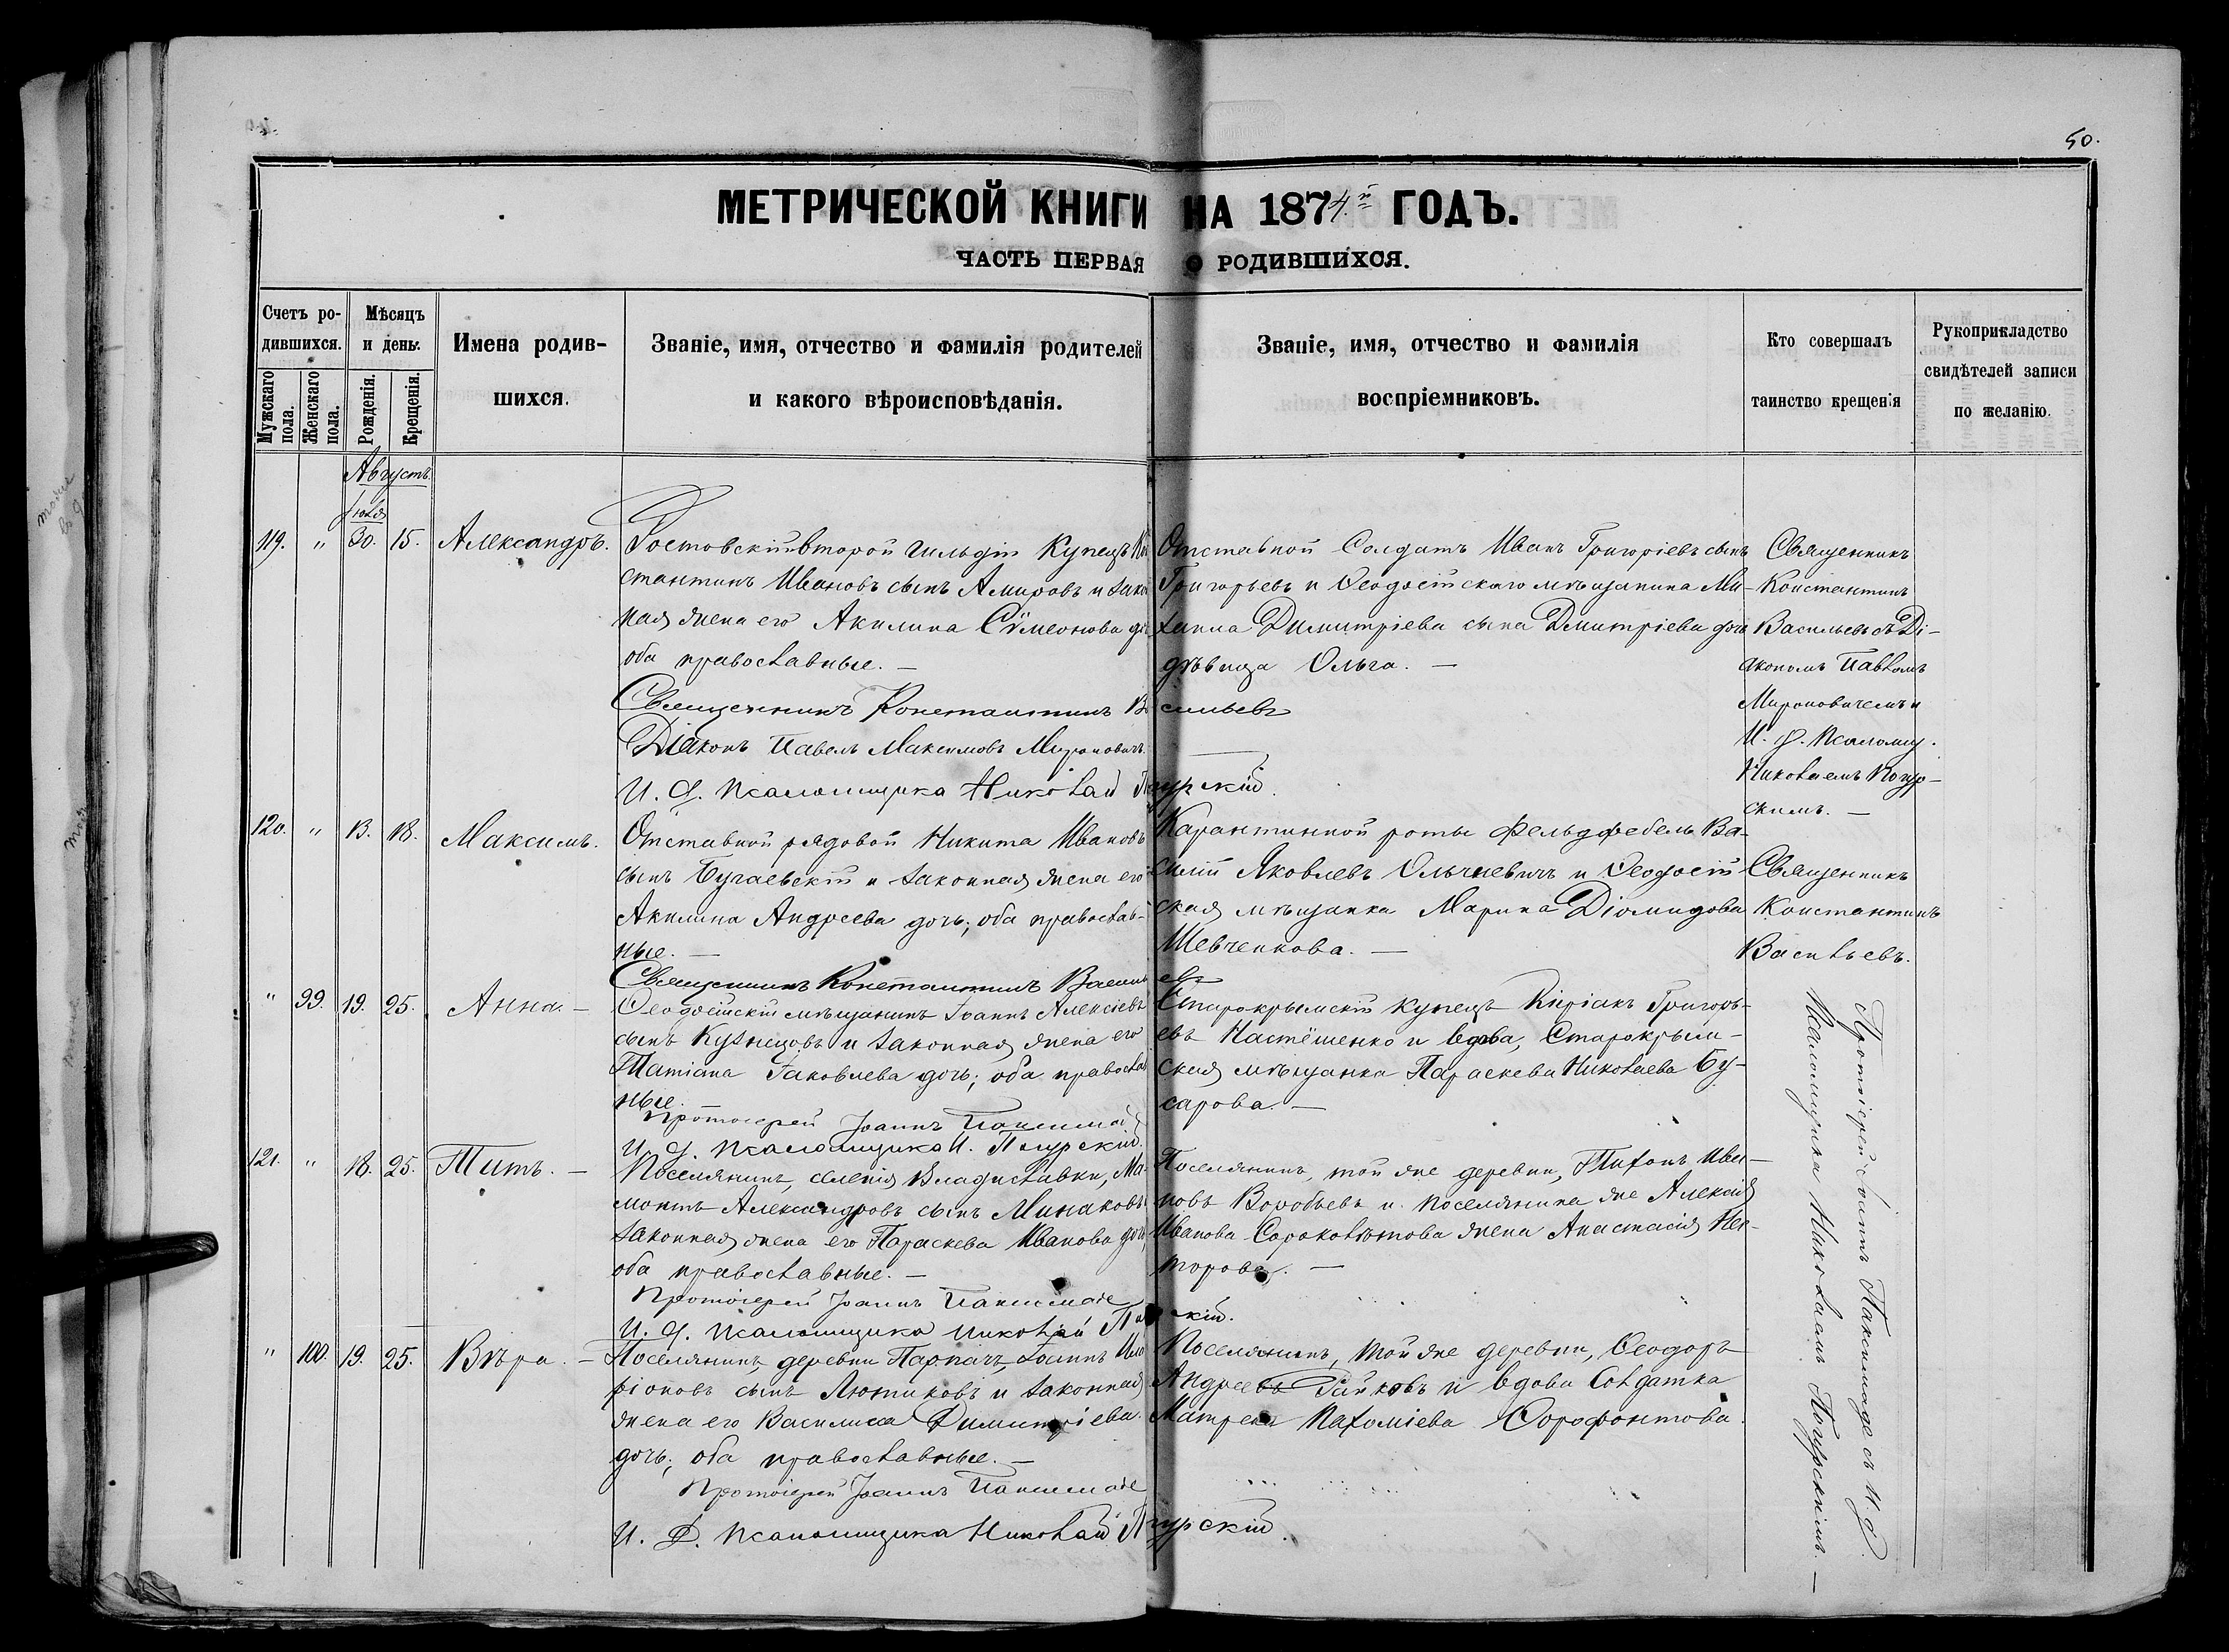 50.
МЕТРИЧЕСКОЙ КНИГИ НА 1874й ГОДЪ.
ЧАСТЬ ПЕРВАЯ О РОДИВШИХСЯ.
Счетъ ро-
дившихся.
Мужскаго пола.
Женскаго пола.
Мѣсяцъ
и день.
Рожденія.
Крещенія.
Имена родив-
шихся.
Званіе, имя, отчество и фамилія родителей
и какого вѣроисповѣданія.
Званіе, имя, отчество и фамилія
воспріемниковъ.
Кто совершалъ
таинство крещенія
Рукоприкладство
свидѣтелей записи
по желанію.
Августъ
Іюля
119. " 30. 15. Александръ.
Ростовскій второй гильдіи Купецъ Кон
стантинъ Ивановъ сынъ Амировъ и закон
ная жена его Акилина Сѵмеонова доч
оба православные. —
Священникъ Константинъ Васильевъ
Діаконъ Павелъ Максимовъ Мироновичъ
И. д. псаломщика Николай Погурскій.
Отставной Солдатъ Иванъ Григоріевъ сынъ
Григорьевъ и Ѳеодосійскаго мѣщанина Ми-
хаила Димитріева сына Дмитріева дочь
дѣвица Ольга. —
Священникъ
Константинъ
Васильевъ съ Ді-
акономъ Павломъ
Мироновичемъ и
И. д. Псаломщ.
Николаемъ Погур-
скимъ. —
120. " 13. 18. Максимъ.
Отставной рядовой Никита Ивановъ
сынъ Бугаевскій и законная жена его
Акилина Андреева дочь; оба православ-
ные. —
Священникъ Константинъ Васильевъ
Карантинной роты Фельдфебель Ва-
силій Яковлевъ Ольчневичъ и Ѳеодосій-
ская мѣщанка Марина Діомидова
Шевченкова. —
Священникъ
Константинъ
Васильевъ.
" 99. 19. 25. Анна. —
Ѳеодосійскій мѣщанинъ Іоаннъ Алексіевъ
сынъ Кузнецовъ и законная жена его
Татіана Іаковлева дочь; оба православ
ные. —
Протоіерей Іоаннъ
И. д. псаломщика Н. Погурскій.
Старокрымскій купецъ Киріакъ Григорь-
евъ Настёшенко и вдова, Старокрым-
ская мѣщанка Параскева Николаева Бу-
сарова. —
121. " 18. 25. Титъ. —
Поселянинъ, селенія Владиславки, Ма-
монтъ Александровъ сынъ Минаковъ
законная жена его Параскева Иванова дочь,
оба православные. —
Протоіерей Іоаннъ
И. д. псаломщика Николай Погурскій.
Поселянинъ, той же деревни, Тихонъ Ива-
новъ Воробьевъ и поселянина же Алексія
Иванова Сороколѣтова жена Анастасія Нек-
торова. —
" 100. 19. 25. Вѣра. —
Поселянинъ деревни Парпачъ, Іоаннъ Ила
ріоновъ сынъ Лютиковъ и законная
жена его Василиса Димитріева
дочь; оба православные. —
Протоіерей Іоаннъ
И. д. псаломщика Николай Погурскій.
Поселянинъ, той же деревни, Ѳеодоръ
Андреевъ Райковъ и вдова Солдатка
Матрена Пахоміева Ѳорофонтова.
Протоіерей Іоаннъ съ И. д.
Псаломщика Николаемъ Погурскимъ. —